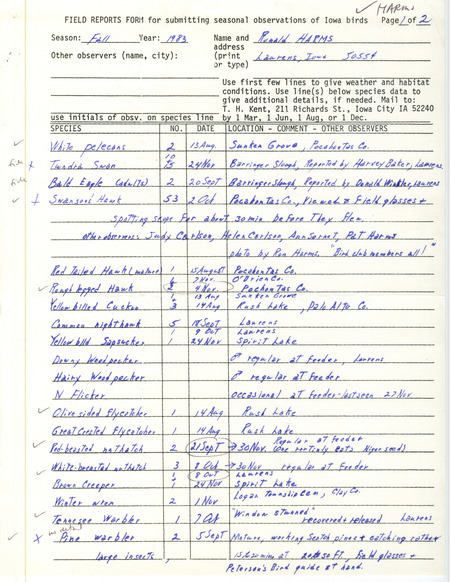 ✓ HARMS
FIELD REPORTS FORM for submitting seasonal observations of Iowa birds Page 1 of 2
Season: Fall Year: 1983 Name and Ronald HARMS
address
Other observers (name, city): (print Laurens, Iowa 50554
or type)
Use first few lines to give weather and habitat
conditions. Use line(s) below species data to
give additional details, if needed. Mail to:
T. H. Kent, 211 Richards St., Iowa City IA 52240
use initials of obsv. on species line by 1 Mar, 1 Jun, 1 Aug, or 1 Dec.
SPECIES NO. DATE LOCATION - COMMENT - OTHER OBSERVERS
✓ White pelecans 2 13 Aug. Sunken Grove, Pocahontas Co.
x Tundra Swan 24 Nov Barringer Slough, Reported by Harvey Baker, Laurens
Bald Eagle (adults) 2 20 Sept Barringer Slough, Reported by Donald Laurens
✓ + Swansons Hawk 53 2 Oct Pocahontas Co., Viewed Field glasses +
spotting scope for about 30 min before They flew.
other observers: Judy Carlson, Helen Carlson, Ann Pat Harms
photo by Ron Harms. "Bird club members all!"
Red Tailed Hawk (mature) 1 15 August Pocahontas Co.
7 Nov. O'Brien Co.
✓ Rough legged Hawk 4 Nov. Pochontas Co.
13 Aug Sunken Grove
Yellow billed Cuckoo 3 14 Aug Rush Lake, Palo Alto Co.
Common nighthawk 5 18 Sept Laurens
1 9 Oct Laurens
Yellow blld Sapsucker 1 24 Nov Spirit Lake
Downy Woodpecker ♂ regular at feeder, Laurens
Hairy Woodpecker ♂ regular at feeder
N Flicker occasional at feeder - last seen 27 Nov.
✓ Olive sided Flycatcher 1 14 Aug Rush Lake
Great Crested Flycatcher 1 14 Aug Rush Lake
✓ Red-breasted nuthatch 2 21 Sept → 30 Nov. Regular at feeder
(one eats Niger seed)
✓ White-breasted nuthatch 3 8 Oct → 30 Nov regular at feeder
1 8 Oct Laurens
Brown Creeper 24 Nov Spirit Lake
Winter wren 2 1 Nov Logan Township Cem, Clay Co.
✓ Tennesee Warbler 1 7 Oct "Window stunned" recovered + released Laurens
✓ x Pine warbler 2 5 Sept Mature, working Scotch pines + catching rather
large insects, 15 to 20 mins at 20 to 30 ft, field glasses +
Peterson's Bird guide at hand.